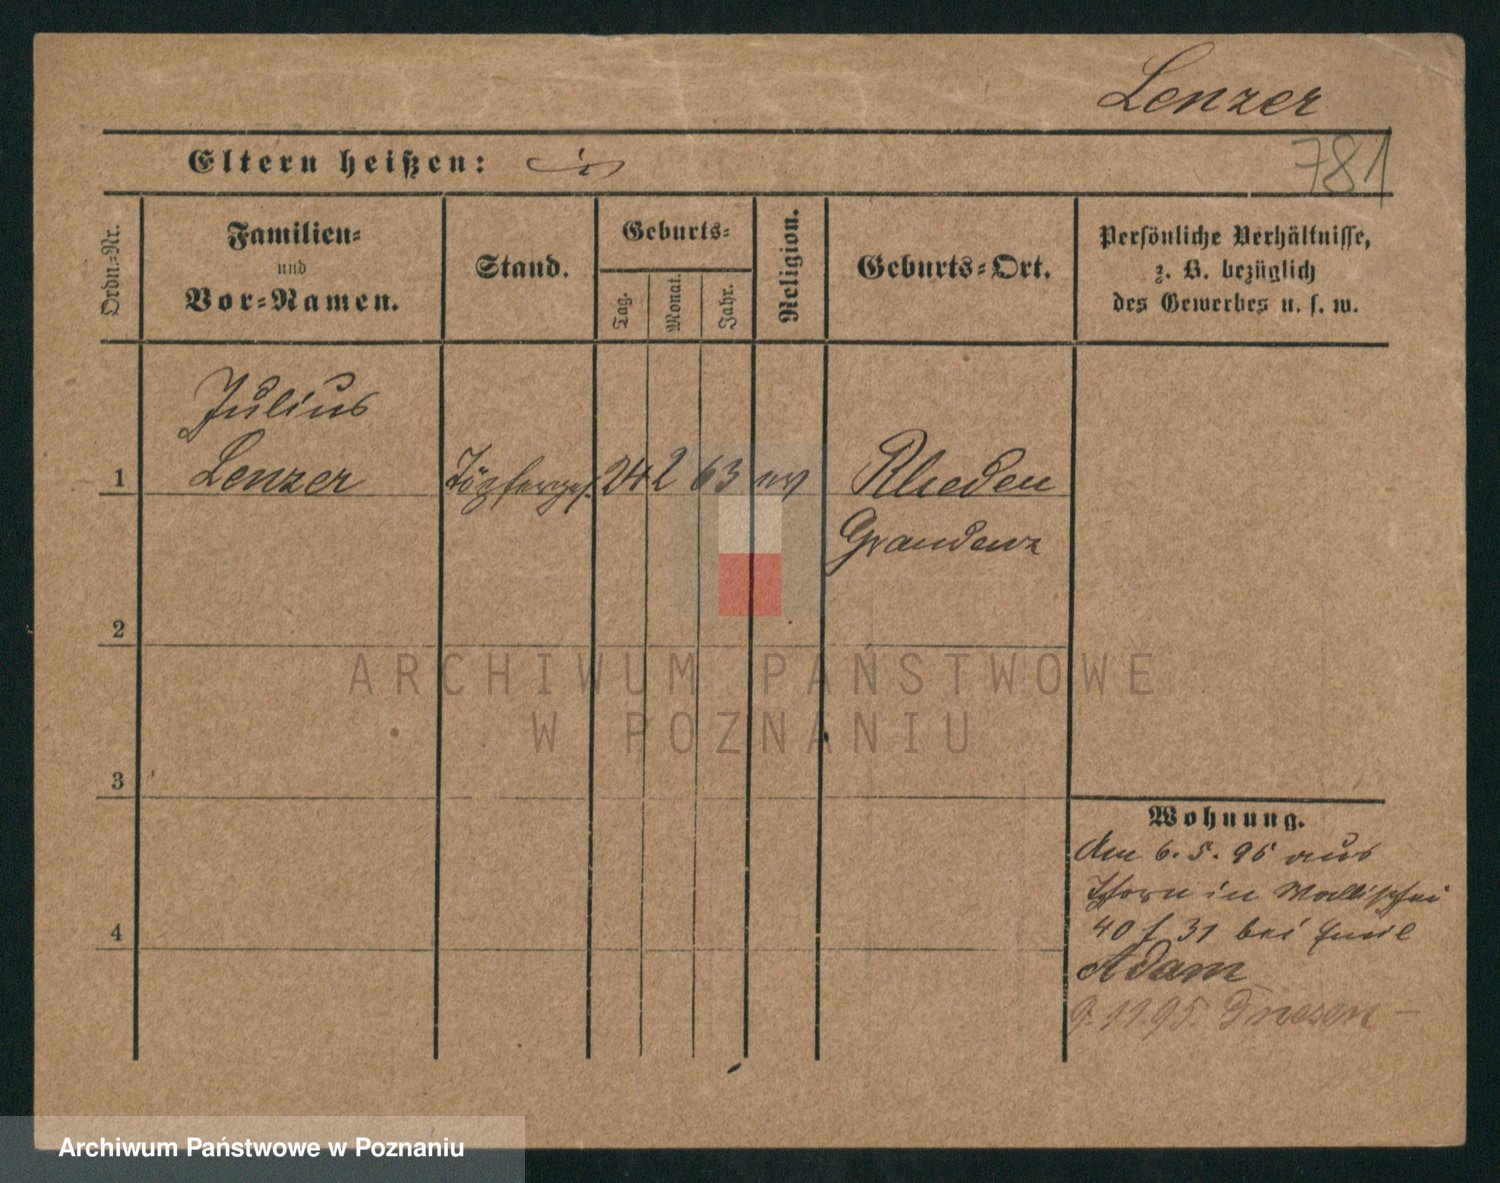 Lenzer
781
Eltern heißen:
Ordn.-Nr.
Familien-
und
Vor-Namen.
Stand.
Geburts-
Tag.
Monat.
Jahr.
Religion.
Geburts-Ort.
Persönliche Verhältnisse,
z. B. bezüglich
des Gewerbes u. s. w.
Julius
1 Lenzer Töpferges. 24 2 63 ev Rheden
Graudenz
2
3
4
ARCHIWUM PAŃSTWOWE
W POZNANIU
Wohnung.
Am 6. 5. 95 aus
Thorn in Wallischei
40 f 31 bei Emil
Adam
9.11.95. Gnesen -
Archiwum Państwowe w Poznaniu